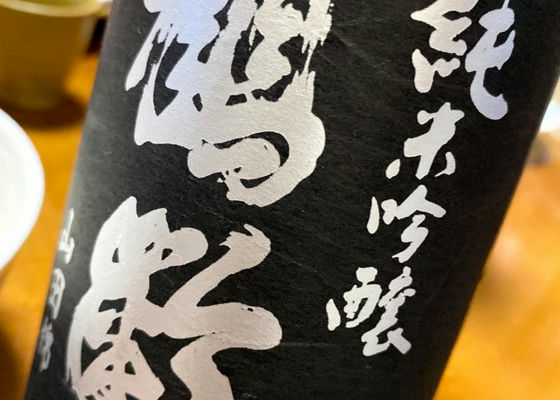 純米吟醸
鶴齢
山田錦